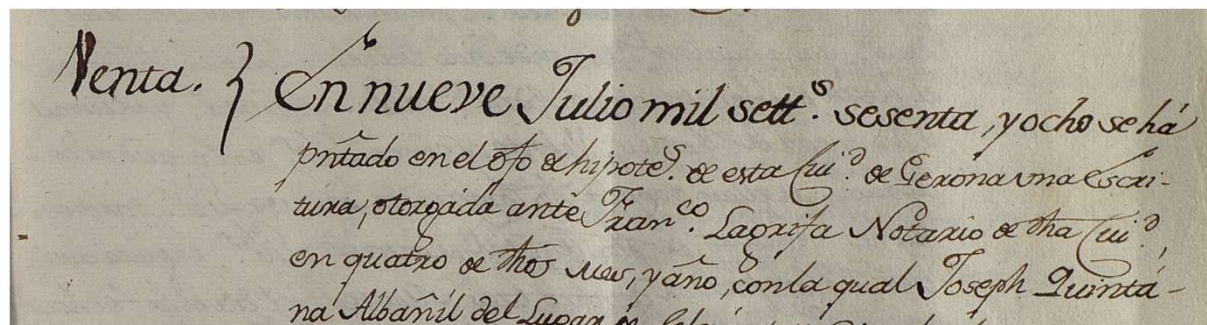 Venta. } En nueve Julio mil sett.s sesenta, y ocho se há
pñtado en el ofo de hipote.s de esta Ciu.d de Gerona una Escri-
tura, otorgada ante Fran.co Lagrifa Notario de dha Ciu.d,
en quatro de dhos mes, y año, con la qual Joseph Quintá-
na Albañil del Lugar